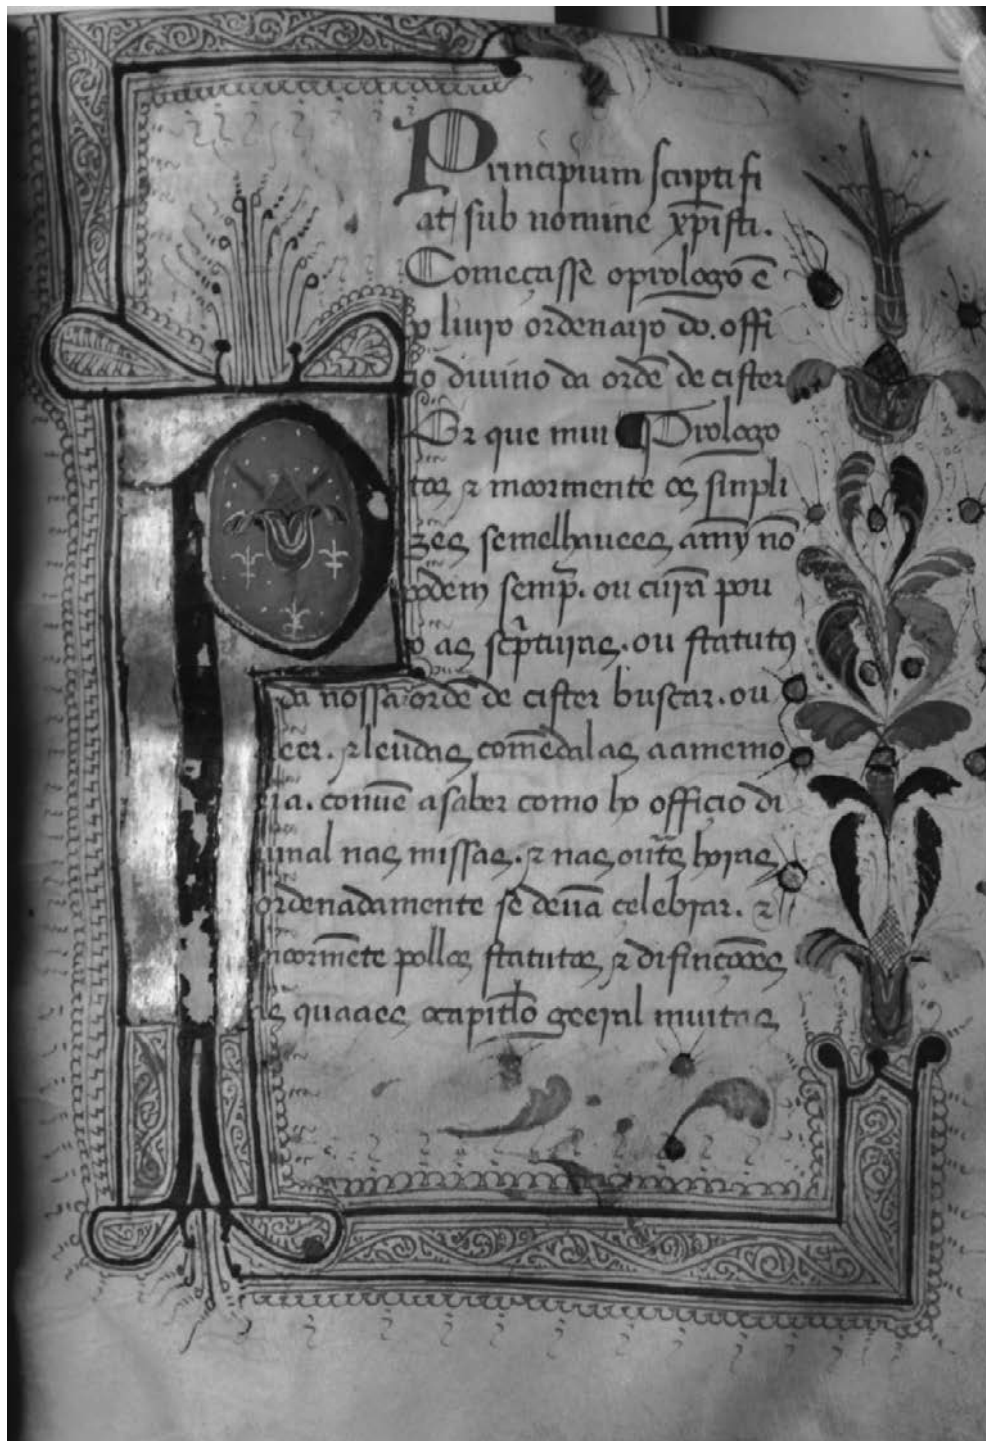 Principium scripti fi
at sub nomine xp̄isti.
Começasse o prologo ē
o liuro ordenairo do. offi
io diuino da ordē de cister
Or que mui Prologo
tos ⁊ moormente os sinpli
zes semelhauees amy nō
podem semp̄. ou curā pou
o as scp̄turas. ou statutus
da nossa ordē de cister buscar. ou
leer. ⁊ leudas comēdalas aa memo
ria. conuē a saber como ho officio di
uinal nas missas. ⁊ nas out̄s horas
ordenadamente se deuā celebrar. ⁊
moormēte pollos statutos ⁊ difinçoões
as quaaes o capitlo geeral muitas